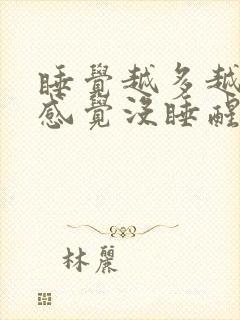 睡覺越多越
感覺沒睡醒
林麗